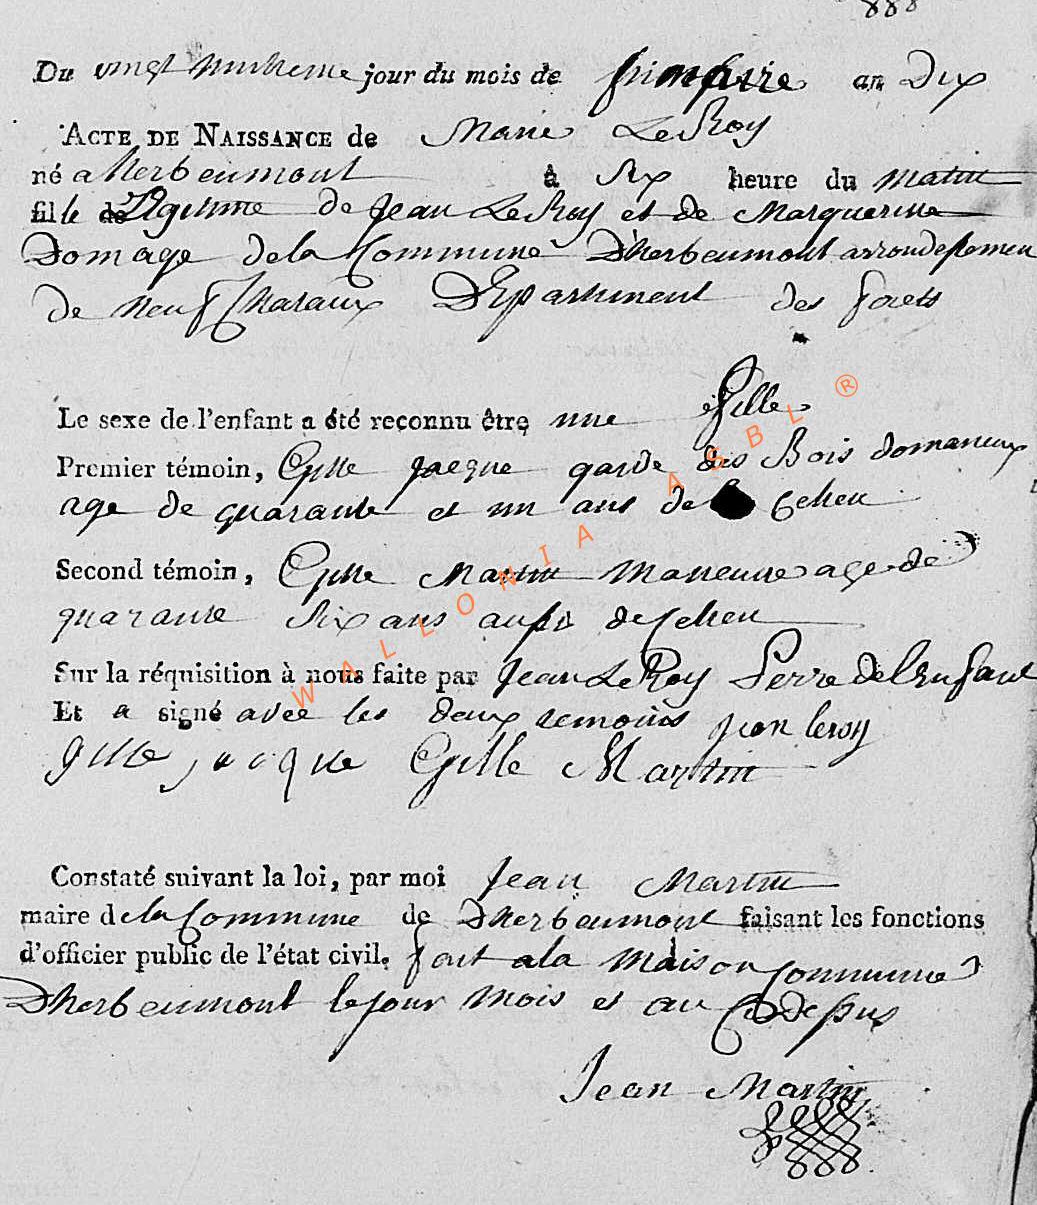 888
Du vingt huitieme jour du mois de frimaire an Dix
ACTE DE NAISSANCE de Marie LeRoy
né a herbeumont à Six heure du matin
fille de Légitime de Jean LeRoy et de Margueritte
Domage de la Commune Dherbeumont arrondissemen
de neufChataux Département des forets
Le sexe de l'enfant a été reconnu être une fille
Premier témoin, Gille Jacque garde des Bois domaneux
age de quarante et un ans de
Second témoin, Gille Martin age de
quarante Six ans aussi de
Sur la réquisition à nous faite par Jean LeRoy Perre de lenfant
Et a signé avec les deux temoins jean leroy
gille jacque Gille Martin
Constaté suivant la loi, par moi Jean Martin
maire de la Commune de Dherbeumont faisant les fonctions
d'officier public de l'état civil. fait a la Maison Commune
Dherbeumont le jour mois et an Ci dessus
Jean Martin
WALLONIA ASBL ®